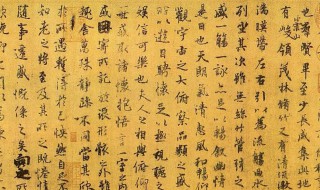 也羣賢畢至少長咸集此地
有峻領茂林脩竹又有清流激
湍暎帶左右引以為流觴曲水
列坐其次雖無絲竹管弦之
盛一觴一詠亦足以暢敘幽情
是日也天朗氣清惠風和暢仰
觀宇宙之大俯察品類之盛
所以遊目騁懷足以極視聽之
娛信可樂也夫人之相與俯仰
一世或取諸懷抱悟言一室之內
或因寄所託放浪形骸之外雖
趣舍萬殊靜躁不同當其欣
於所遇暫得於己怏然自足不
知老之將至及其所之既惓情
隨事遷感慨係之矣向之所